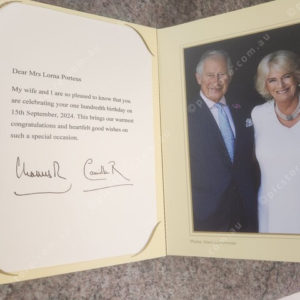 Dear Mrs Lorna Portess
My wife and I are so pleased to know that you
are celebrating your one hundredth birthday on
15th September, 2024. This brings our warmest
congratulations and heartfelt good wishes on
such a special occasion.
Charles R Camilla R